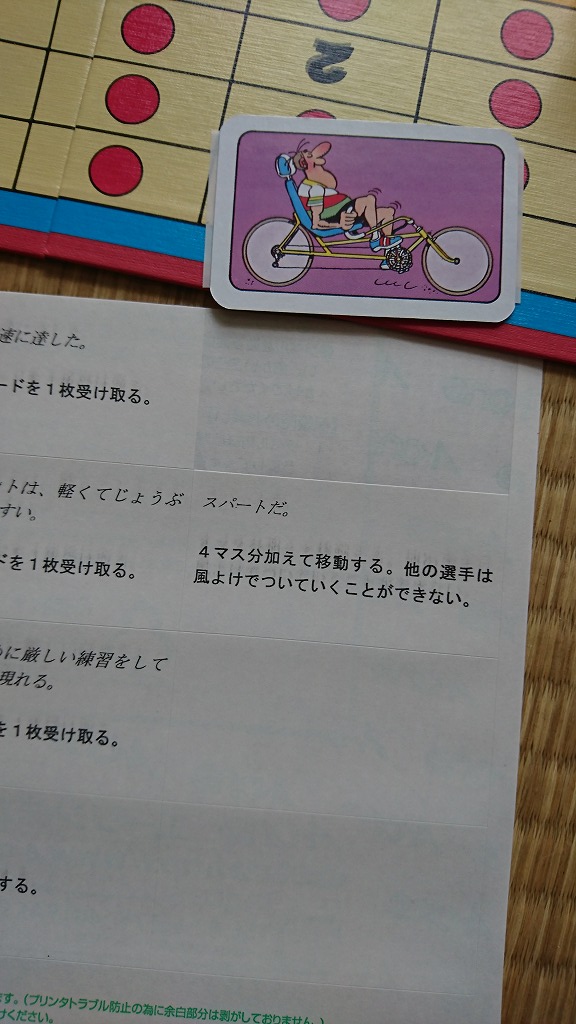 2
速に達した。
ードを１枚受け取る。
ットは、軽くてじょうぶ
すい。
ドを１枚受け取る。
スパートだ。
４マス分加えて移動する。他の選手は
風よけでついていくことができない。
に厳しい練習をして
現れる。
を１枚受け取る。
する。
ます。（プリンタトラブル防止の為に余白部分は剥がしておりません。）
けください。